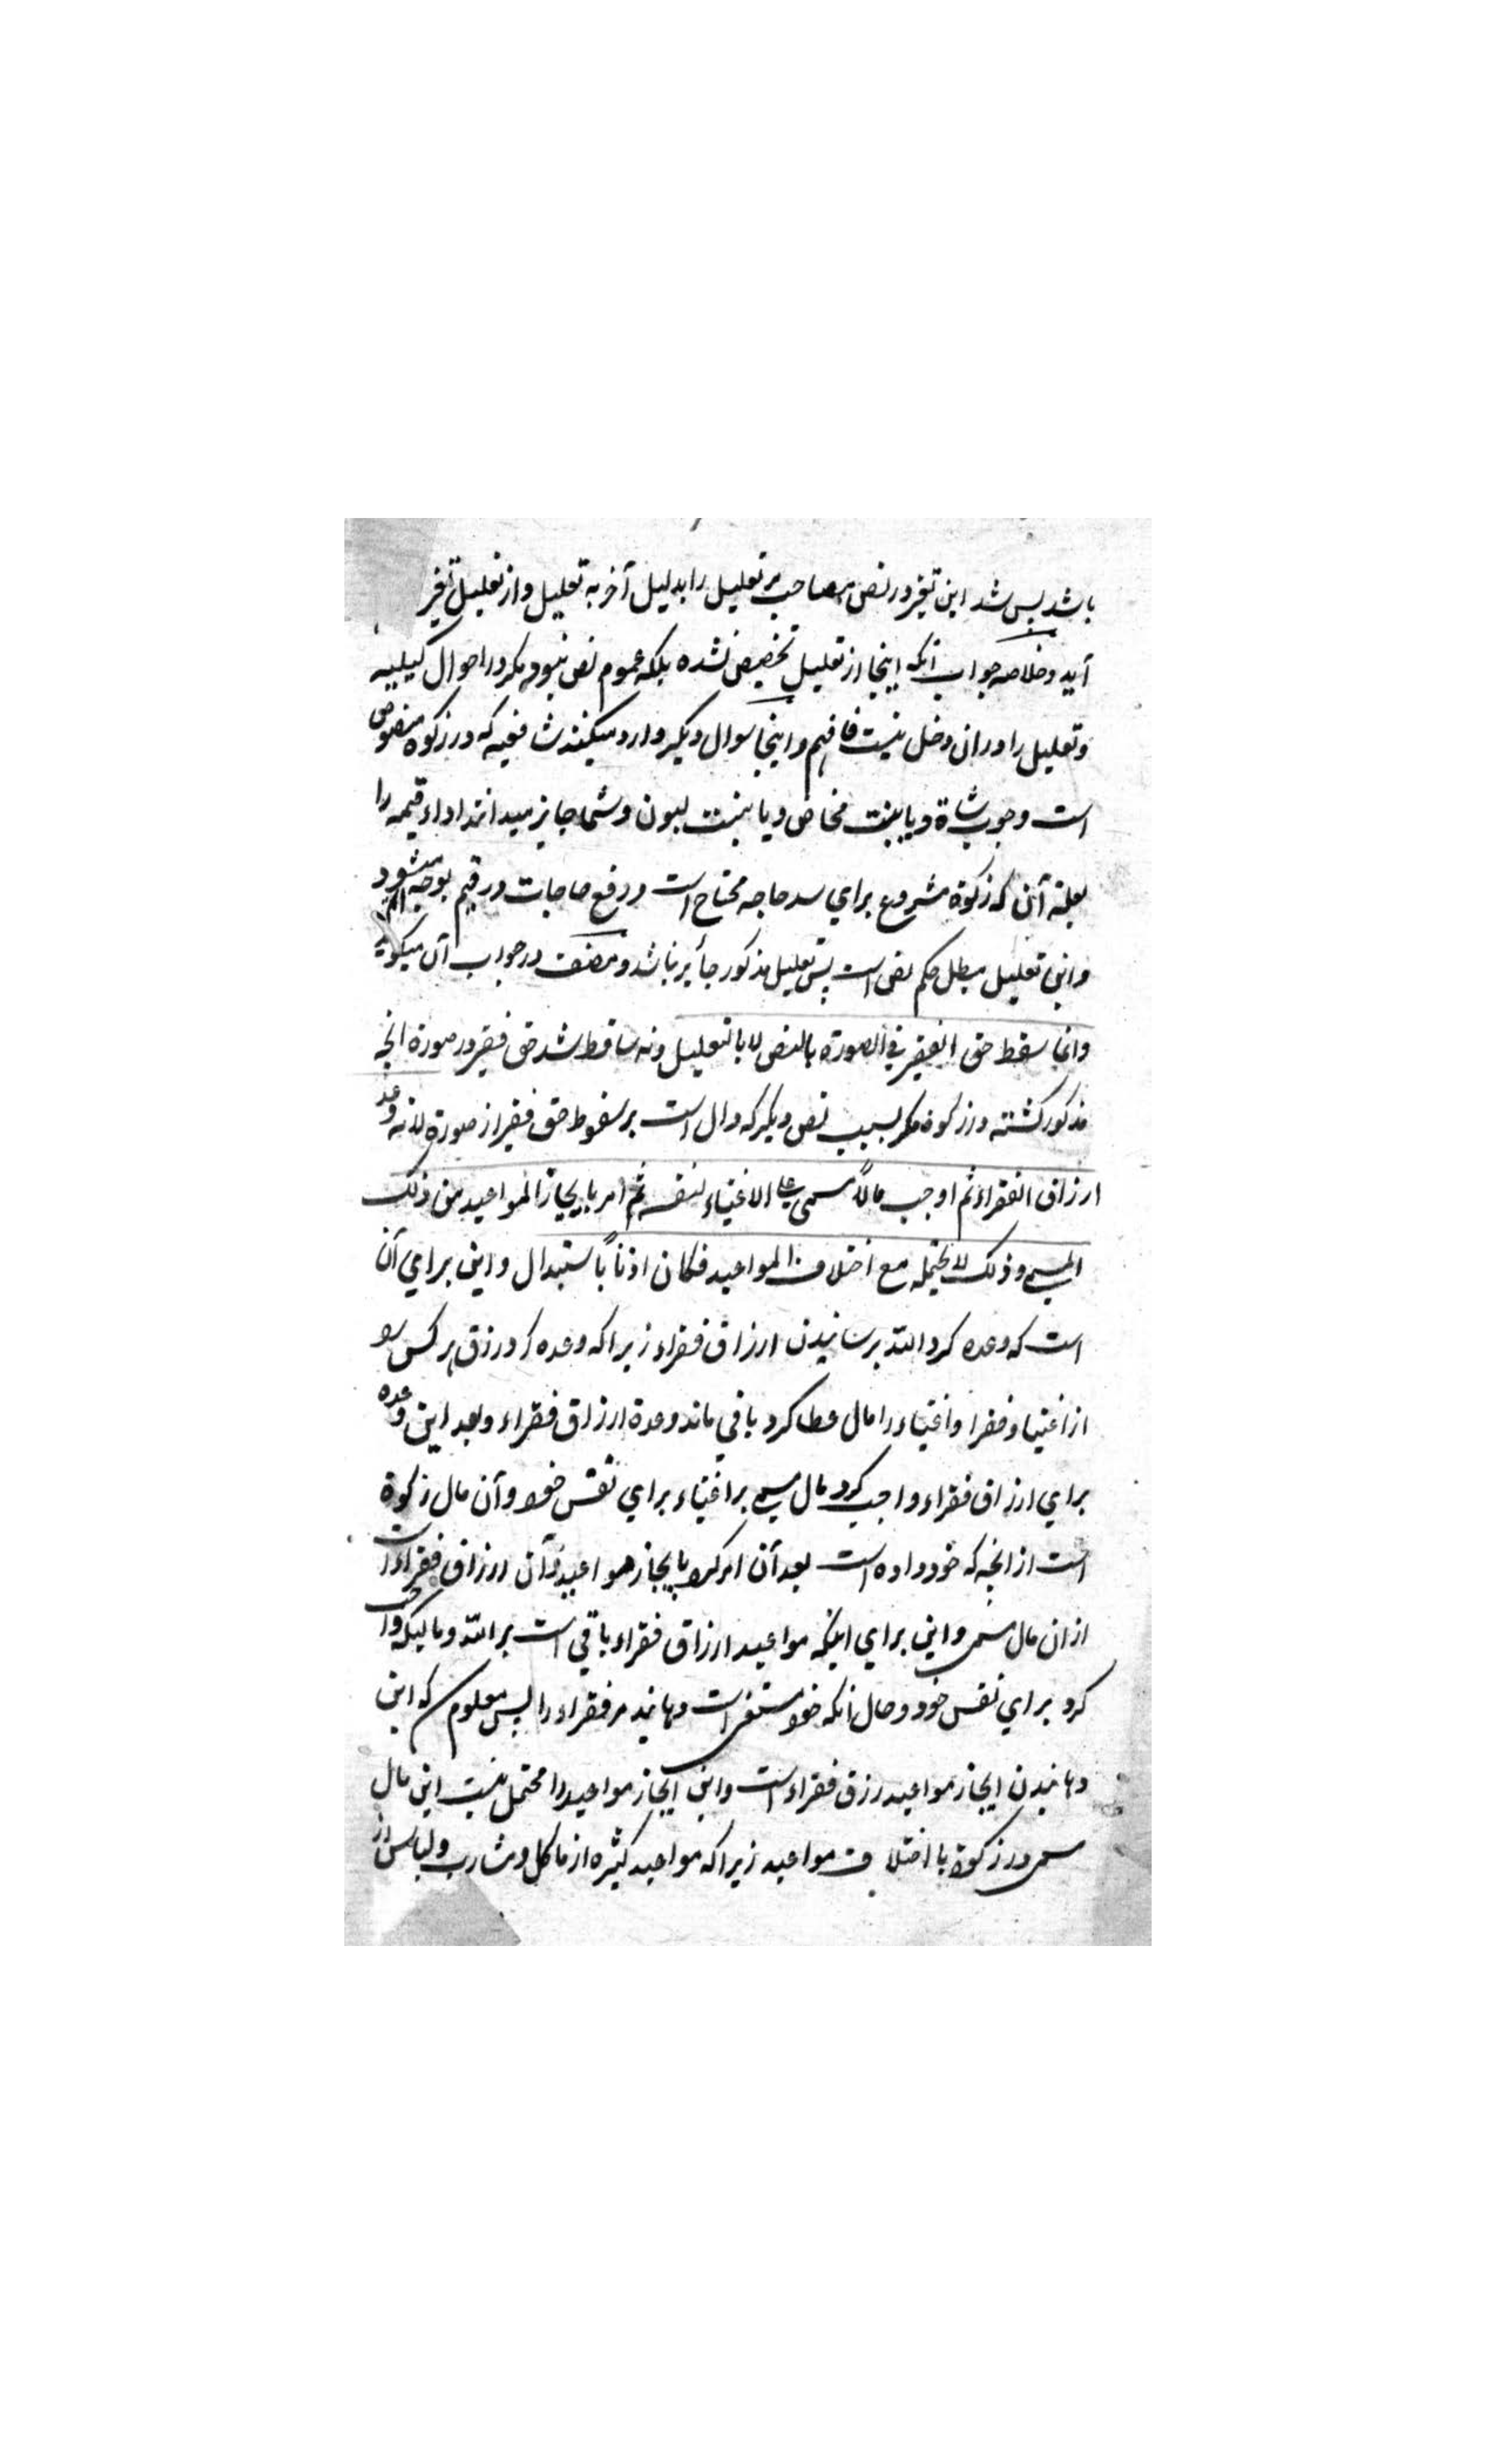 باشد پس شد این تغیر در نص مصاحب مر تعلیل را بدلیل آخر به تعلیل و از تعلیل تغیر
آید و خلاصه جواب آنکه اینجا از تعلیل تخصیص نشده بلکه عموم نص نبوده مکر در احوال کیلیه
و تعلیل را در ان دخل نیست فافهم و اینجا سوال دیکر وارد میکنند شافعیه که در زکوة منصوص
است وجوب شاة و یا بنت مخاض و یا بنت لبون و شما جایز میدانند اداء قیمه را
بعلة آن که زکوة مشروع برای سد حاجه محتاج است و دفع حاجات در قیم بوجه اتم میشود
و این تعلیل مبطل حکم نص است پس تعلیل مذکور جائز نباشد و مصنف در جواب آن میکوید
وانما سقط حق الفقیر فی الصورة بالنص لا بالتعلیل و نه ساقط شد حق فقیر در صورة انچه
مذکور کشته در زکوة مکر بسبب نص دیکر که دال است بر سقوط حق فقیر از صورة لانه وعد
ارزاق الفقراء ثم اوجب مالاً مسمی علی الاغنیاء لنفسه ثم امر بایجاز المواعید من ذلک
المسمی و ذلک لا یحتمله مع اختلاف المواعید فکان اذناً باستبدال و این برای آن
است که وعده کرد الله برسانیدن ارزاق فقراء زیرا که وعده کرد رزق هر کس را
از اغنیا و فقرا و اغنیاء را مال عطا کرد باقی ماند وعدة ارزاق فقراء و بعد این وعده
برای ارزاق فقراء واجب کرد مال مسمی بر اغنیاء برای نفس خود و آن مال زکوة
است از انچه که خود داده است بعد آن امر کرد بایجاز مواعید و آن ارزاق فقراء است
از ان مال مسمی و این برای اینکه مواعید ارزاق فقراء باقی است بر الله و مالیکه واجب
کرد برای نفس خود و حال آنکه خود مستغنی است دهانید مر فقراء را پس معلوم که این
دهانیدن ایجاز مواعید رزق فقراء است و این ایجاز مواعید را محتمل نیست این مال
مسمی در زکوة با اختلاف مواعید زیرا که مواعید کثیره از ماکل و مشارب و لباس از